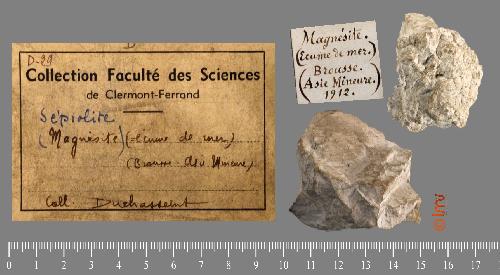 D-29
Collection Faculté des Sciences
de Clermont-Ferrand
Sépiolite
(Magnésite) (= écume de mer)
(Brousse. Asie Mineure)
Coll. Duchasseint
Magnésite.
(Ecume de mer.)
(Brousse.
(Asie Mineure.)
1912.
0 1 2 3 4 5 6 7 8 9 10 11 12 13 14 15 16 17